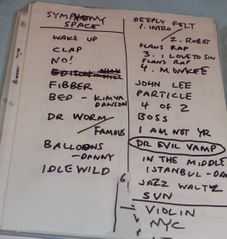 SYMPHONY
SPACE
WAKE UP
CLAP
NO!
FIBBER
BED - KIMYA
DAWSON
DR WORM
FAMOUS
BALLOONS
- DANNY
IDLEWILD
DEEPLY FELT
1. INTRO
2. ROBOT
PLANS RAP
3. I LOVE TO SIN
PLANS RAP
4. MONKEE
JOHN LEE
PARTICLE
4 OF 2
BOSS
I AM NOT YR
DR EVIL VAMP
IN THE MIDDLE
ISTANBUL - DAN
6. JAZZ WALTZ
SUN
VIOLIN
NYC